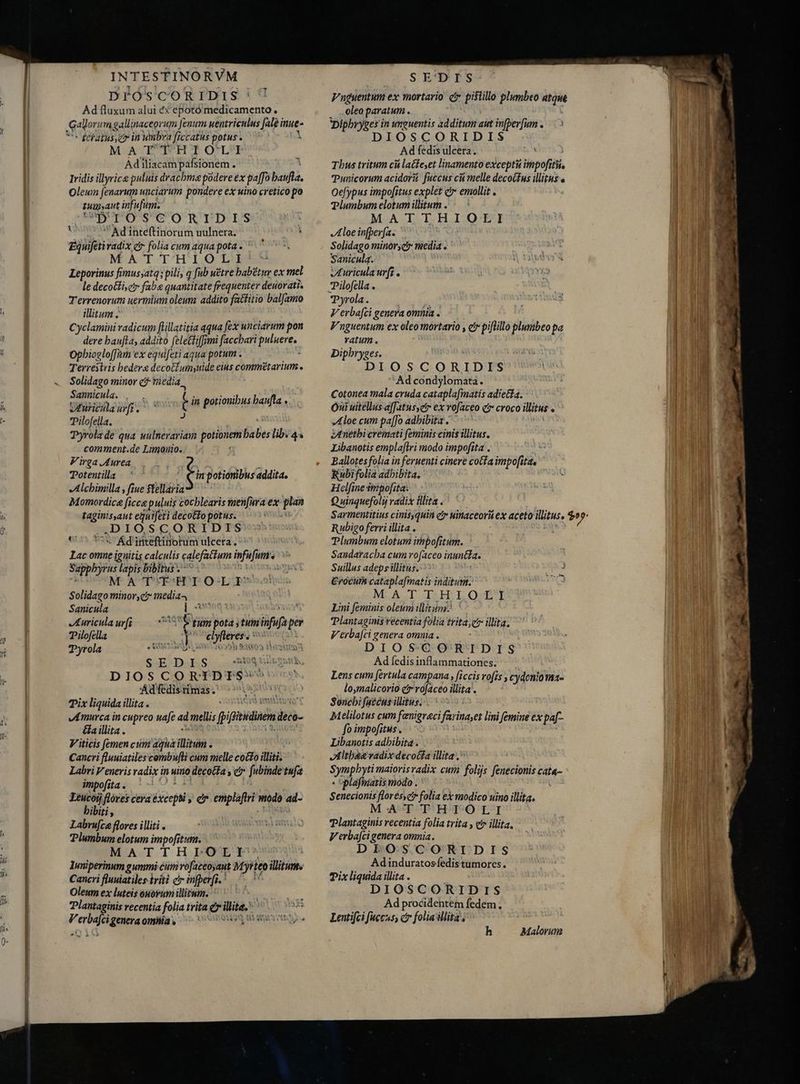 INTESTINORVM
DIOSCORIDIS
Ad fluxum alui ex epoto medicamento.
Gallorum gallinaceorum senum uentriculus sale inue-
teratus, & in umbra siccatus potus.
MATTHIOLI
Ad iliacam passionem.
Iridis illyricæ puluis drachmæ pōdere ex passo haustla.
Oleum fenarum unciarum pondere ex uino cretico po
tum, aut infusum.
DIOSCORIDIS
Ad intestinorum uulnera.
Equiseti radix & folia cum aqua pota.
MATTHIOLI
Leporinus fimus, atq; pili, q sub uētre habētur ex mel
le decocti, & fabæ quantitate frequenter deuorati.
Terrenorum uermium oleum addito factitio balsamo
illitum.
Cyclamini radicum stillatitia aqua sex unciarum pon
dere hausta, addito selectissimi sacchari puluere.
Ophioglossum ex equiseti aqua potum.
Terrestris hederæ decoctum, uide eius commētarium.
Solidago minor & media
Sannicula.
Auricula ursi.
in potionibus hausta.
Pilosella.
Pyrola de qua uulnerariam potionem habes lib. 4.
comment. de Limonio.
Virga Aurea
Potentilla
in potionibus addita.
Alchimilla, siue Stellaria
Momordicæ siccæ puluis cochlearis mensura ex plan
taginis, aut equiseti decocto potus.
DIOSCORIDIS
Ad intestinorum ulcera.
Lac omne ignitis calculis calefactum infusum.
Sapphyrus lapis bibitus.
MATTHIOLI
Solidago minor, & media
Sanicula
Auricula ursi
tum pota, tum infusa per
Pilosella
clysteres.
Pyrola
SEDIS
DIOSCORIDIS
Ad sedis rimas.
Pix liquida illita.
Amurca in cupreo uase ad mellis spissitudinem deco-
cta illita.
Viticis semen cum aqua illitum.
Cancri fluuiatiles combusti cum melle cocto illiti.
Labri Veneris radix in uino decocta, & subinde tusa
imposita.
Leucoij flores cera excepti, & emplastri modo ad-
hibiti,
Labruscæ flores illiti.
Plumbum elotum impositum.
MATTHIOLI
Iuniperinum gummi cum rosaceo, aut Myrteo illitum.
Cancri fluuiatiles triti & inspersi.
Oleum ex luteis ouorum illitum.
Plantaginis recentia folia trita & illita.
Verbasci genera omnia,
SEDIS
Vnguentum ex mortario & pistillo plumbeo atque
oleo paratum.
Diphryges in unguentis additum aut inspersum.
DIOSCORIDIS
Ad sedis ulcera.
Thus tritum cū lacte, et linamento exceptū impositū.
Punicorum acidorū succus cū melle decoctus illitus.
Oesypus impositus explet & emollit.
Plumbum elotum illitum.
MATTHIOLI
Aloe inspersa.
Solidago minor, & media.
Sanicula.
Auricula ursi.
Pilosella.
Pyrola.
Verbasci genera omnia.
Vnguentum ex oleo mortario, & pistillo plumbeo pa
ratum.
Diphryges.
DIOSCORIDIS
Ad condylomata.
Cotonea mala cruda cataplasmatis adiecta.
Oui uitellus assatus, & ex rosaceo & croco illitus.
Aloe cum passo adhibita.
Anethi cremati seminis cinis illitus.
Libanotis emplastri modo imposita.
Ballotes folia in feruenti cinere cocta imposita.
Rubi folia adhibita.
Helsine imposita.
Quinquefolij radix illita.
Sarmentitius cinis, quin & uinaceorū ex aceto illitus.
Rubigo ferri illita.
Plumbum elotum impositum.
Sandaracha cum rosaceo inuncta.
Suillus adeps illitus.
Crocum cataplasmatis inditum.
MATTHIOLI
Lini seminis oleum illitum.
Plantaginis recentia folia trita, & illita.
Verbasci genera omnia.
DIOSCORIDIS
Ad sedis inflammationes.
Lens cum sertula campana, siccis rosis, cydonio ma-
lo, malicorio & rosaceo illita.
Sonchi succus illitus.
Melilotus cum fœnigræci farina, et lini semine ex pas-
so impositus.
Libanotis adhibita.
Altheæ radix decocta illita.
Symphyti maioris radix cum folijs senecionis cata-
plasmatis modo.
Senecionis flores, & folia ex modico uino illita.
MATTHIOLI
Plantaginis recentia folia trita, & illita.
Verbasci genera omnia.
DIOSCORIDIS
Ad induratos sedis tumores.
Pix liquida illita.
DIOSCORIDIS
Ad procidentem sedem.
Lentisci succus, & folia illita.
h Malorum